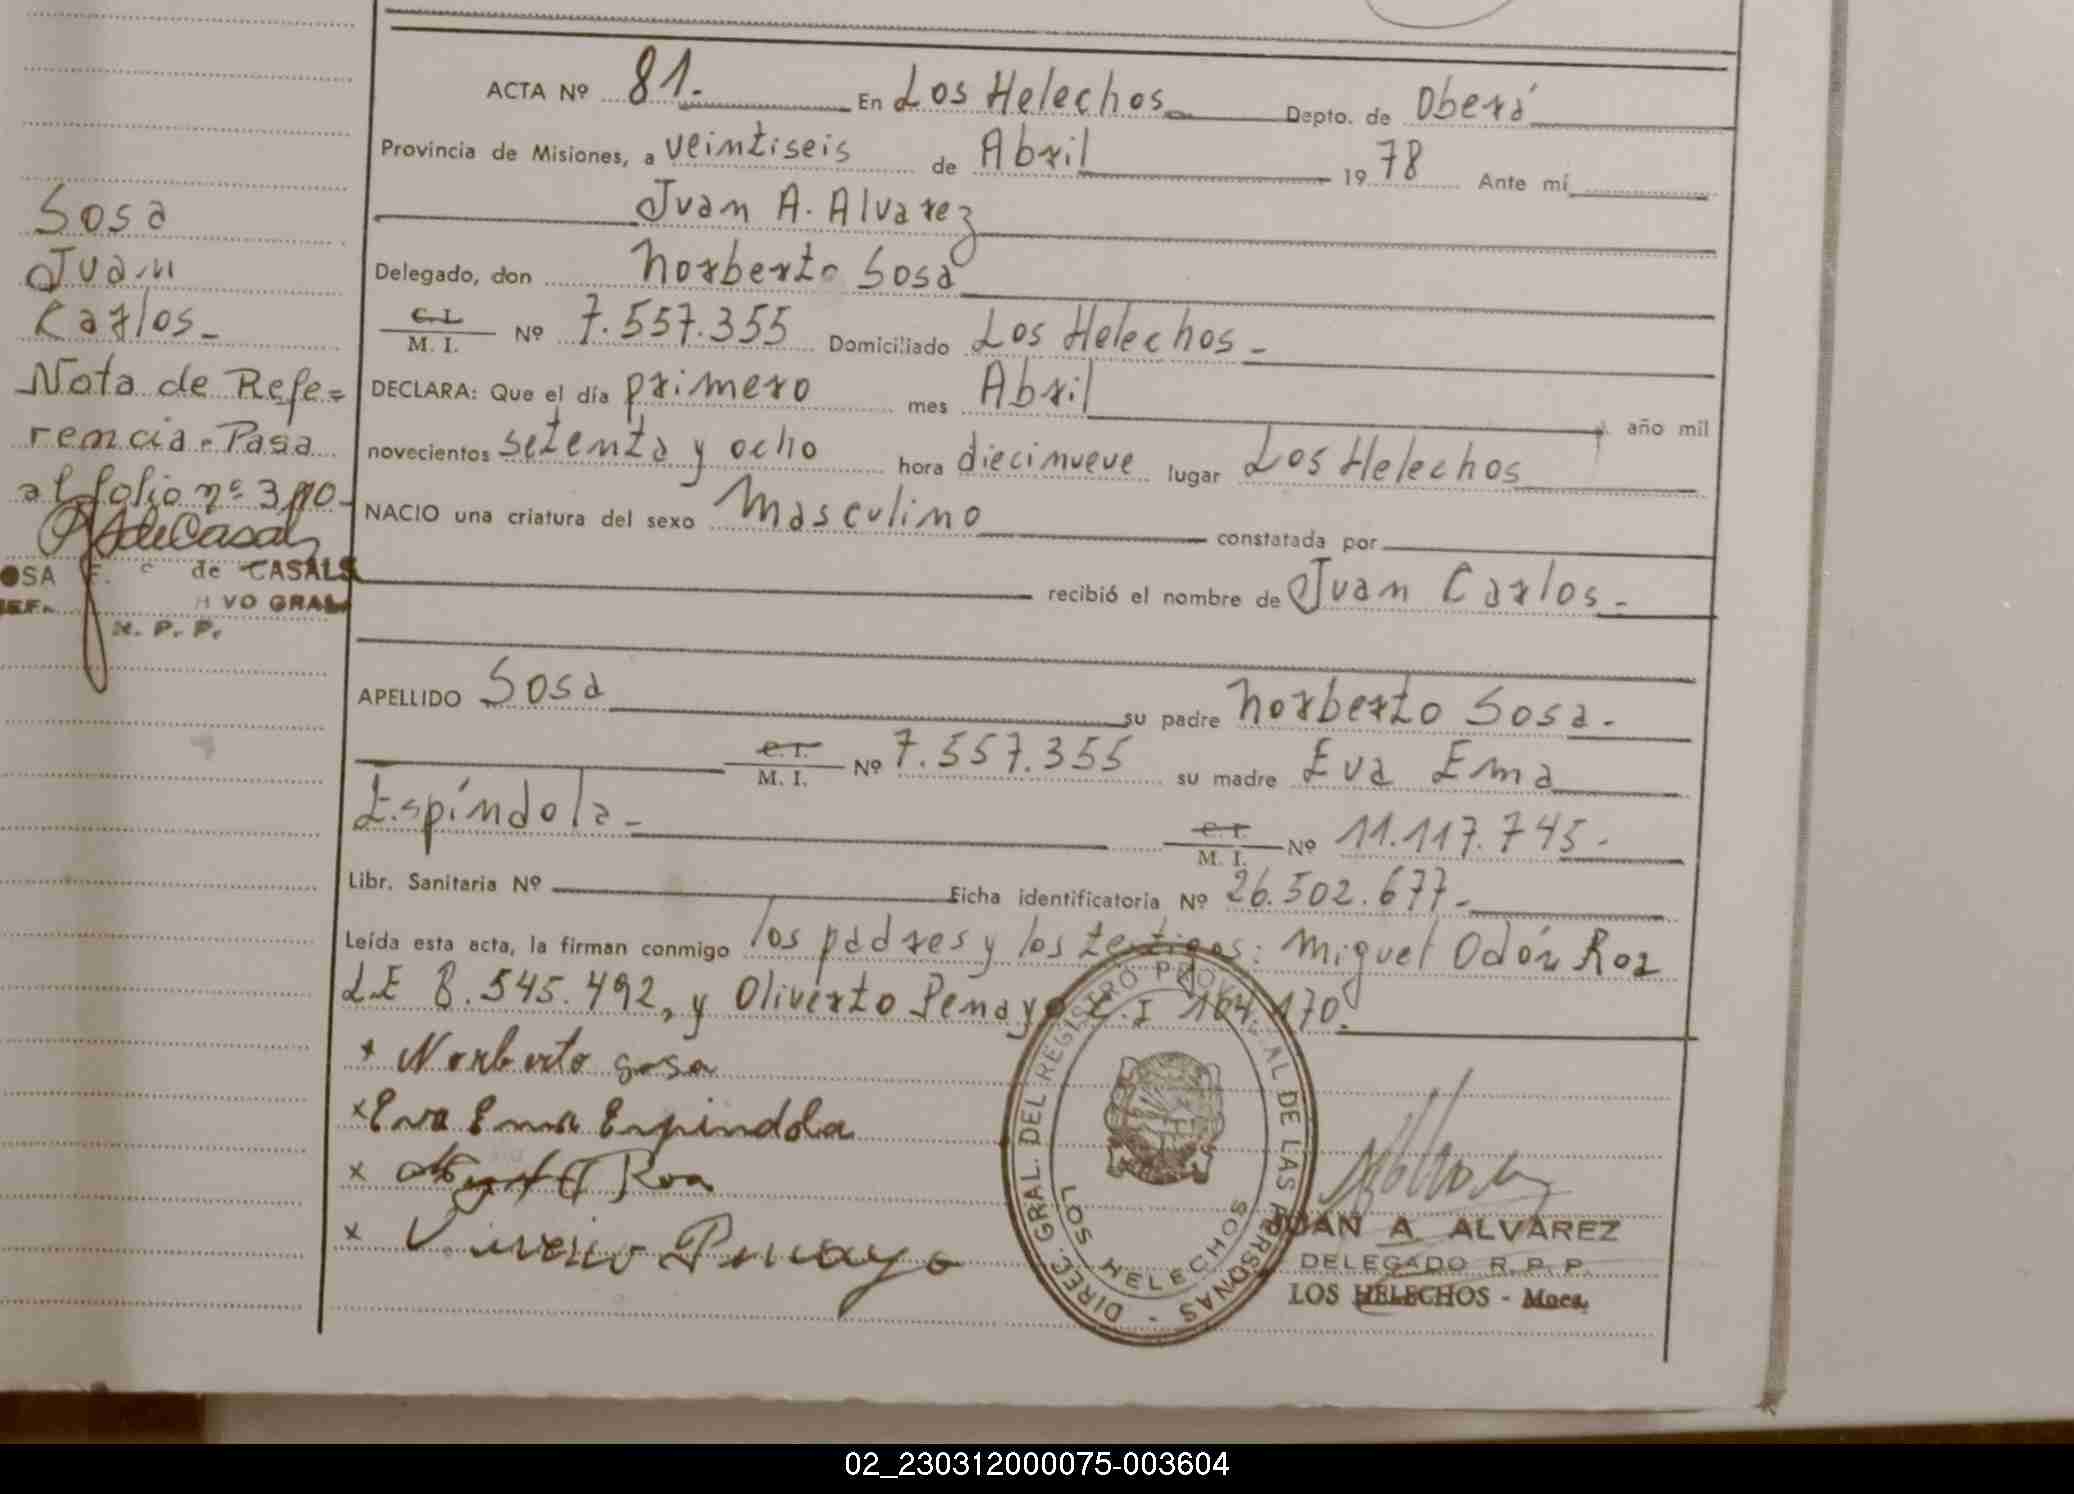 ACTA Nº 81. En Los Helechos Depto. de Oberá
Provincia de Misiones, a veintiseis de Abril 1978 Ante mí
Juan A. Alvarez
Delegado, don Norberto Sosa
C. I. M. I. Nº 7.557.355 Domiciliado Los Helechos -
DECLARA: Que el día primero mes Abril año mil
novecientos setenta y ocho hora diecinueve lugar Los Helechos
NACIO una criatura del sexo Masculino constatada por
recibió el nombre de Juan Carlos -
APELLIDO Sosa su padre Norberto Sosa.
C. I. M. I. Nº 7.557.355 su madre Eva Ema
Espíndola - C. I. M. I. Nº 11.117.745 -
Libr. Sanitaria Nº Ficha identificatoria Nº 26.502.677 -
Leída esta acta, la firman conmigo los padres y los testigos: Miguel Odón Roa
LE 8.545.492, y Oliverto Penayo C.I 164.170.
x Norberto sosa
x Eva Ema Espindola
x Roa
x Penayo
Sosa
Juan
Carlos -
Nota de Refe=
rencia - Pasa
al folio nº
de CASALS
VO GRAL
R. P. P.
DIREC. GRAL. DEL REGISTRO PROVINCIAL DE LAS PERSONAS -
LOS HELECHOS
JUAN A ALVAREZ
DELEGADO R. P. P.
LOS HELECHOS - Mnes.
02_230312000075-003604